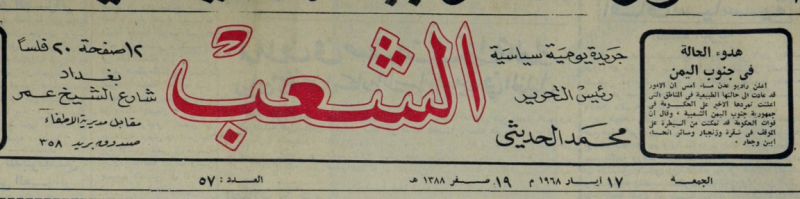 هدوء الحالة
في جنوب اليمن
اعلن راديو عدن مساء امس ان الامور
قد عادت الى حالتها الطبيعية في المناطق التي
اعلنت تمردها الاخير على الحكومة في
جمهورية جنوب اليمن الشعبية . وقال ان
قوات الحكومة قد تمكنت من السيطرة على
الموقف في شقرة وزنجبار وسائر انحاء
ابين وجعار .
جريدة يومية سياسية
رئيس التحرير
محمد الحديثي
الشعب
١٢ صفحة ٢٠ فلسا
بغداد
شارع الشيخ عمر
مقابل مديرية الاطفاء
صندوق بريد ٣٥٨
الجمعة ١٧ ايار ١٩٦٨ م ١٩ صفر ١٣٨٨ هـ العدد : ٥٧